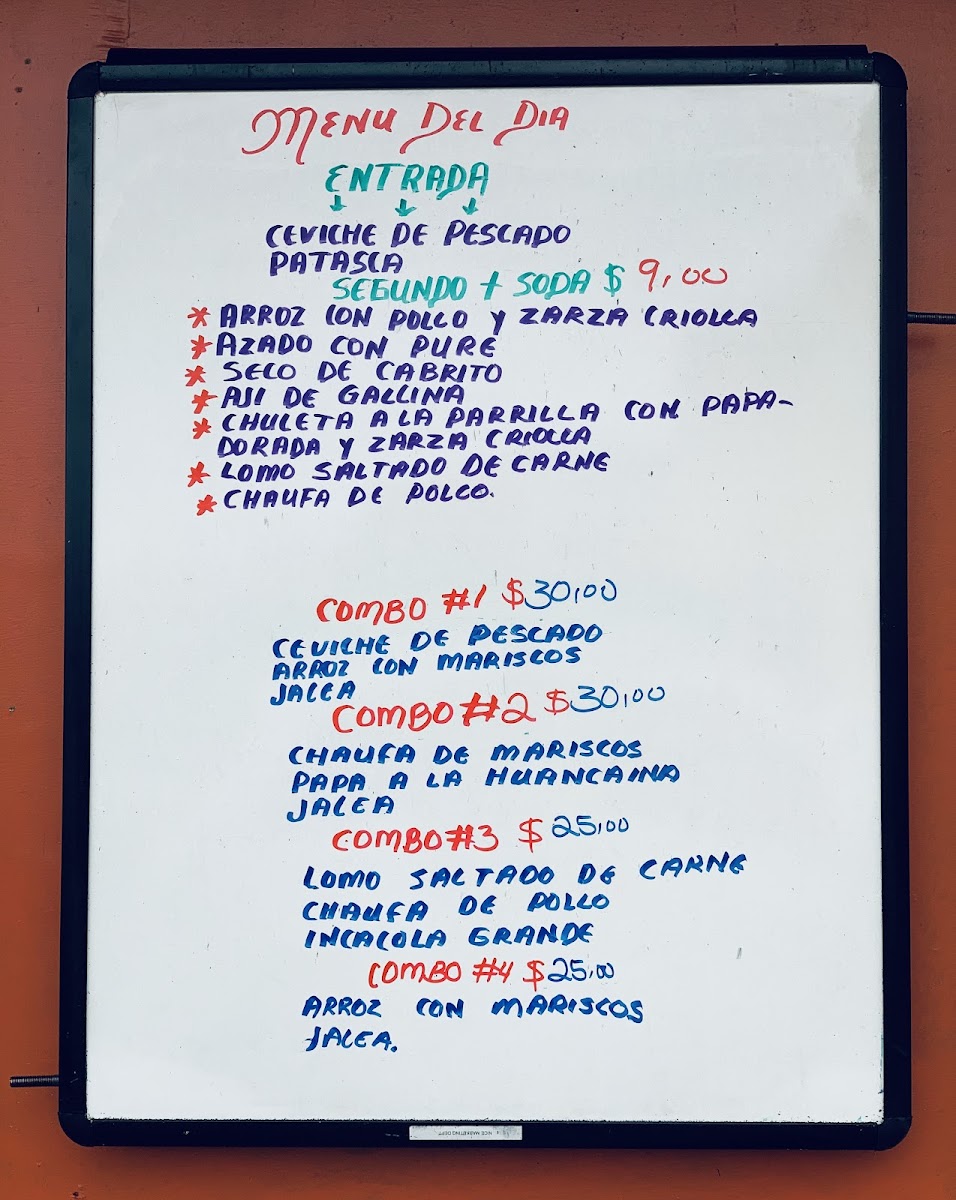 MENU DEL DIA
ENTRADA
CEVICHE DE PESCADO
PATASCA
SEGUNDO + SODA $ 9,00
* ARROZ CON POLLO Y ZARZA CRIOLLA
* AZADO CON PURE
* SECO DE CABRITO
* AJI DE GALLINA
* CHULETA A LA PARRILLA CON PAPA-
DORADA Y ZARZA CRIOLLA
* LOMO SALTADO DE CARNE
* CHAUFA DE POLLO.
COMBO #1 $30,00
CEVICHE DE PESCADO
ARROZ CON MARISCOS
JALEA
COMBO #2 $30,00
CHAUFA DE MARISCOS
PAPA A LA HUANCAINA
JALEA
COMBO #3 $25,00
LOMO SALTADO DE CARNE
CHAUFA DE POLLO
INCACOLA GRANDE
COMBO #4 $25,00
ARROZ CON MARISCOS
JALEA.